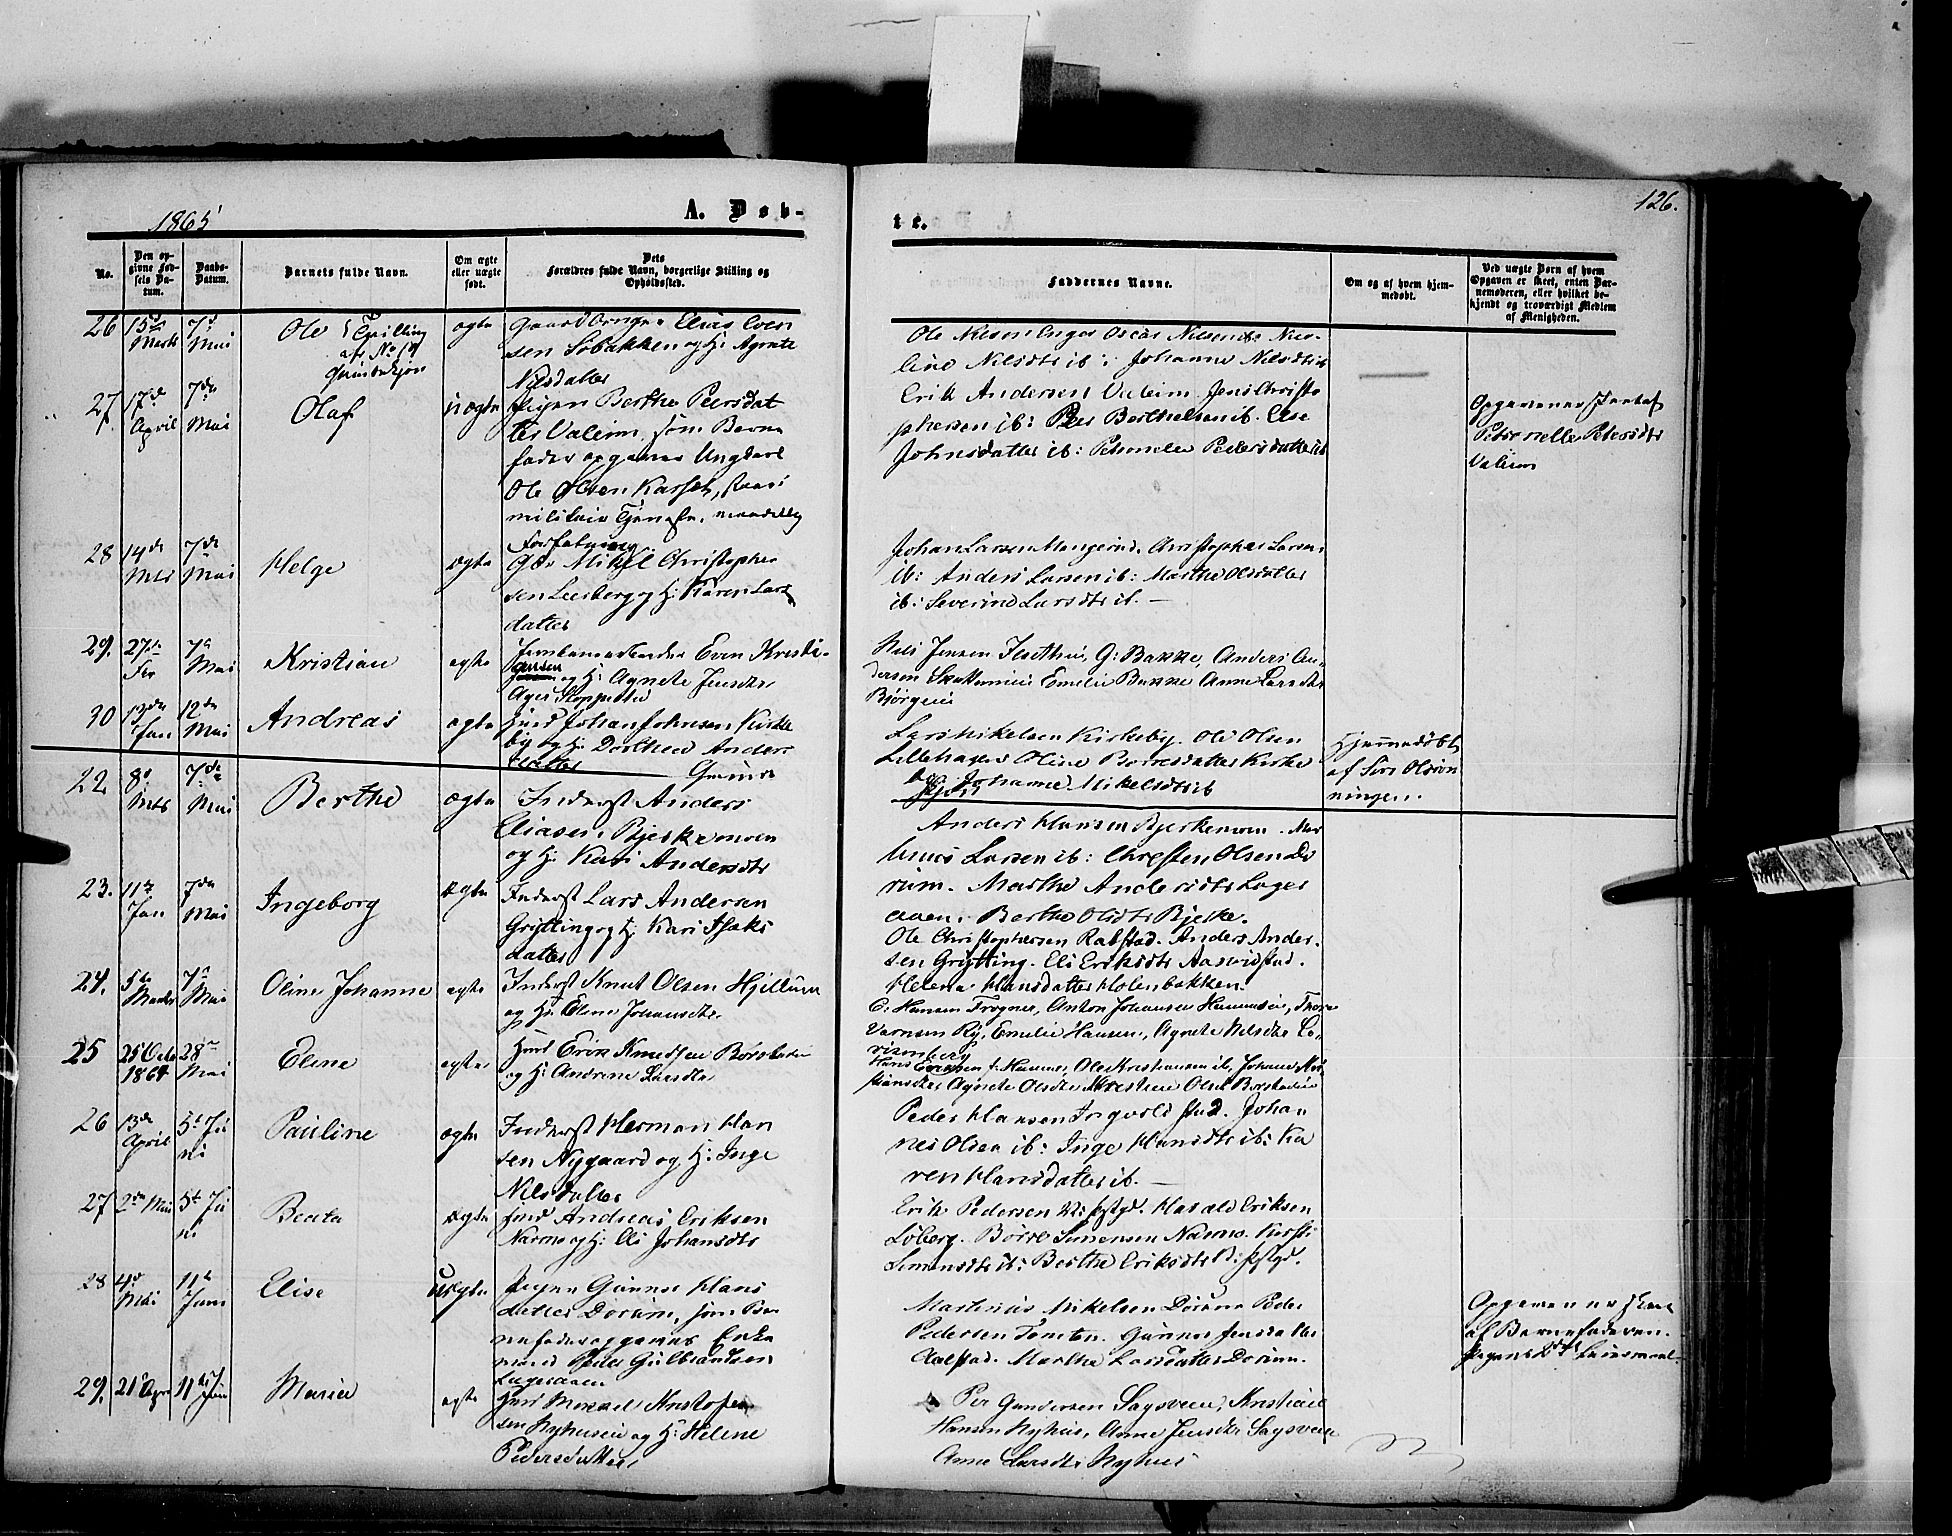 1865
A. Døb-
te.
126.
No.
Den op-
givne Fød-
sels Da-
tum.
Daabs-
Datum.
Barnets fulde Navn.
Om ægte
eller uægte
født.
Dets
Forældres fulde Navn, borgerlige Stilling og
Opholdssted.
Faddernes Navne.
Om og af hvem hjem-
medøbt.
Ved uægte Børn af hvem
Opgaven er skeet, enten Bar-
nemoderen, eller hvilket be-
kjendt og troværdigt Medlem
af Menigheden.
26 15de Marts 7de Mai
Ole Tvilling
afr. No 19
Qvindekjøn
ægte
Elias Even
sen Søbakken og H: Agnete
Nilsdatter
Ole Nilsen Enger Oscar Nilsen ib: Nico-
line Nilsdtr ib: Johanne Nilsdtr ib
27. 17de April 7de Mai
Olaf
uægte
Pigen Berthe Peersdat
ter Valeim, som Barne
fader opgives Ungkarl
Ole Olsen Karset, staar i
militair Tjeneste,
Forfatning
Erik Andersen Valeim Jens Christo
phersen ib: Peer Berthelsen ib. Else
Johnsdatter ib: Petronelle Pedersdatter ib
Opgaven er skeet af
Petronelle Petersdtr
Valeim
28 14de Mts 7de Mai
Helge
ægte
Mikel Christopher
sen Leeberg og H: Karen Lars
datter
Johan Larsen Mangerud, Christopher Larsen
ib: Anders Larsen ib: Marthe Olsdatter
ib: Severine Larsdtr ib. —
29. 27de Fer 7de Mai
Kristian
ægte
Jernbanearbeider Even Kristi-
ansen og H: Agnete Jensdtr
Nils Jensen G: Bakke, Anders An-
dersen Emelie Bakke Anne Larsdtr
Bjørgeeie
30 13de Jan 12de Mai
Andreas
ægte
Husm Johan Johnsen Kirke
by og H: Dorthea Anders
datter
Lars Mikelsen Kirkeby. Ole Olsen
Lillehagen Oline Borresdatter Kirke
by Johanne Mikelsdtr ib
Hjemmedøbt
af Siri Olsen
ningen.
22 8de Mts 7de Mai
Berthe
ægte
Inderst Anders
Eliasen Bjerkemoen
og H: Kari Andersdtr
Anders Hansen Bjerkemoen. Mar
tinus Larsen ib: Christen Olsen Do
rum. Marthe Andersdtr Lager
aaen. Berthe Olsdtr Bjerke.
23. 11te Jan 7de Mai
Ingeborg
ægte
Inderst Lars Andersen
Grytting og H: Kari Isaks
datter
Ole Christophersen Rabstad. Anders Ander-
sen Grytting. Eli Eriksdtr Aasvidstad.
Helene Hansdatter Holenbakken.
24. 5te Marts 7de Mai
Oline Johanne
ægte
Inderst Knut Olsen Hjellum
og H: Elene Johansdtr
C: Hansen Frogner, Anton Johansen Thore
Varnsen Ry, Emelie Hansen, Agnete Nilsdtr Lo-
25 25 Octo 1864 28de Mai
Eline
ægte
Husm Erik Knudsen
og H: Andrine Larsdtr
Hans Eriksen f: Hammer, Ole Kristiansen ib, Johane Kri-
stiansdtr Agnete Olsdtr
26 13de April 5te Juni
Pauline
ægte
Inderst Herman Han
sen Nygaard og H: Inge
Nilsdatter
Peder Hansen Ingvoldstad. Johan
nes Olsen ib: Inge Hansdtr ib: Ka
ren Hansdatter ib. —
27 2den Mai 5te Juni
Beata
ægte
Husm Andreas Eriksen
Narmo og H: Eli Johansdtr
Erik Pedersen Harald Eriksen
Løberg. Børre Simensen Narmo. Kirsti
Simensdtr ib: Berthe Eriksdtr
28 4de Mai 11te Juni
Elise
uægte
Pigen Gunnor Hans
datter Dorum, som Bar
nefader opgives Enke
mand Peder Gulbrandsen
Lageraaen
Martinus Mikelsen Dorum Peder
Pedersen Tomten. Gunnor Jensdatter
Aalstad. Marthe Larsdatter Dorum.
Opgaven er skeet
af Barnefaderen.
29. 21de Apr 11te Juni
Maria
ægte
Husm Mikael Kristofer
sen Nyhuseie og H: Helene
Pedersdatter
Per Gundersen Sagsveen, Kristian
Hansen Nyhus, Anne Jensdtr Sagsveen
Anne Larsdtr Nyhus